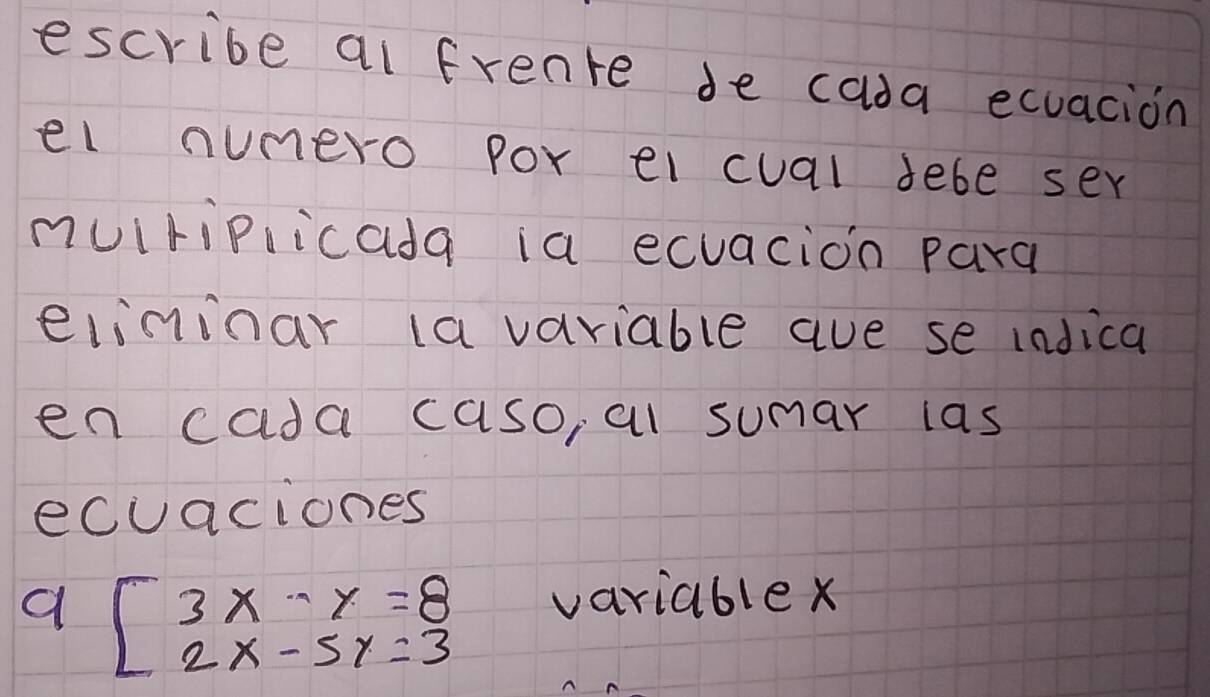 escribe al frente de cada ecuación
el numero por el cual debe ser
multiplicada la ecuación para
eliminar la variable que se indica
en cada caso, al sumar las
ecuaciones
a [ 3x - y = 8 variable x
2x - 5y = 3